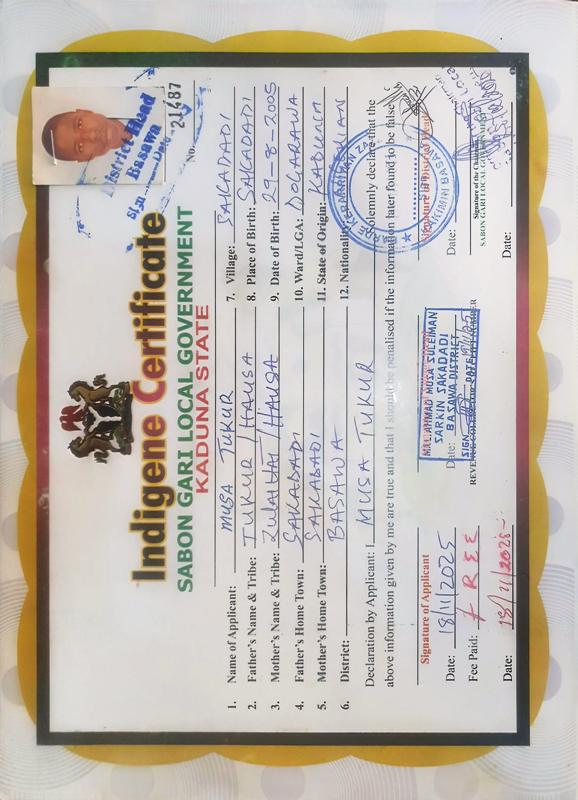 Indigene Certificate
SABON GARI LOCAL GOVERNMENT
KADUNA STATE
District Head
Basawa
No: 21487
1. Name of Applicant: MUSA TUKUR
2. Father's Name & Tribe: TUKUR / HAUSA
3. Mother's Name & Tribe: ZULAIHAT / HAUSA
4. Father's Home Town: SAKADADI
5. Mother's Home Town: SAKADADI
6. District: BASAWA
7. Village: SAKADADI
8. Place of Birth: SAKADADI
9. Date of Birth: 29-8-2005
10. Ward/LGA: DOGARAWA
11. State of Origin: KADUNA
12. Nationality:
Declaration by Applicant: I MUSA TUKUR Solemnly declare that the
above information given by me are true and that I should be penalised if the information later found to be false.
Signature of Applicant
Date: 18/11/2025
Fee Paid: FREE
Date:
MAL. AHMAD MUSA SULEIMAN
SARKIN SAKADADI
BASAWA DISTRICT
SIGN DATE
Date:
Signature of District Head
Date:
HAKIMIN BASAWA
Signature of the Chairman
SABON GARI LOCAL GOVERNMENT
Date: